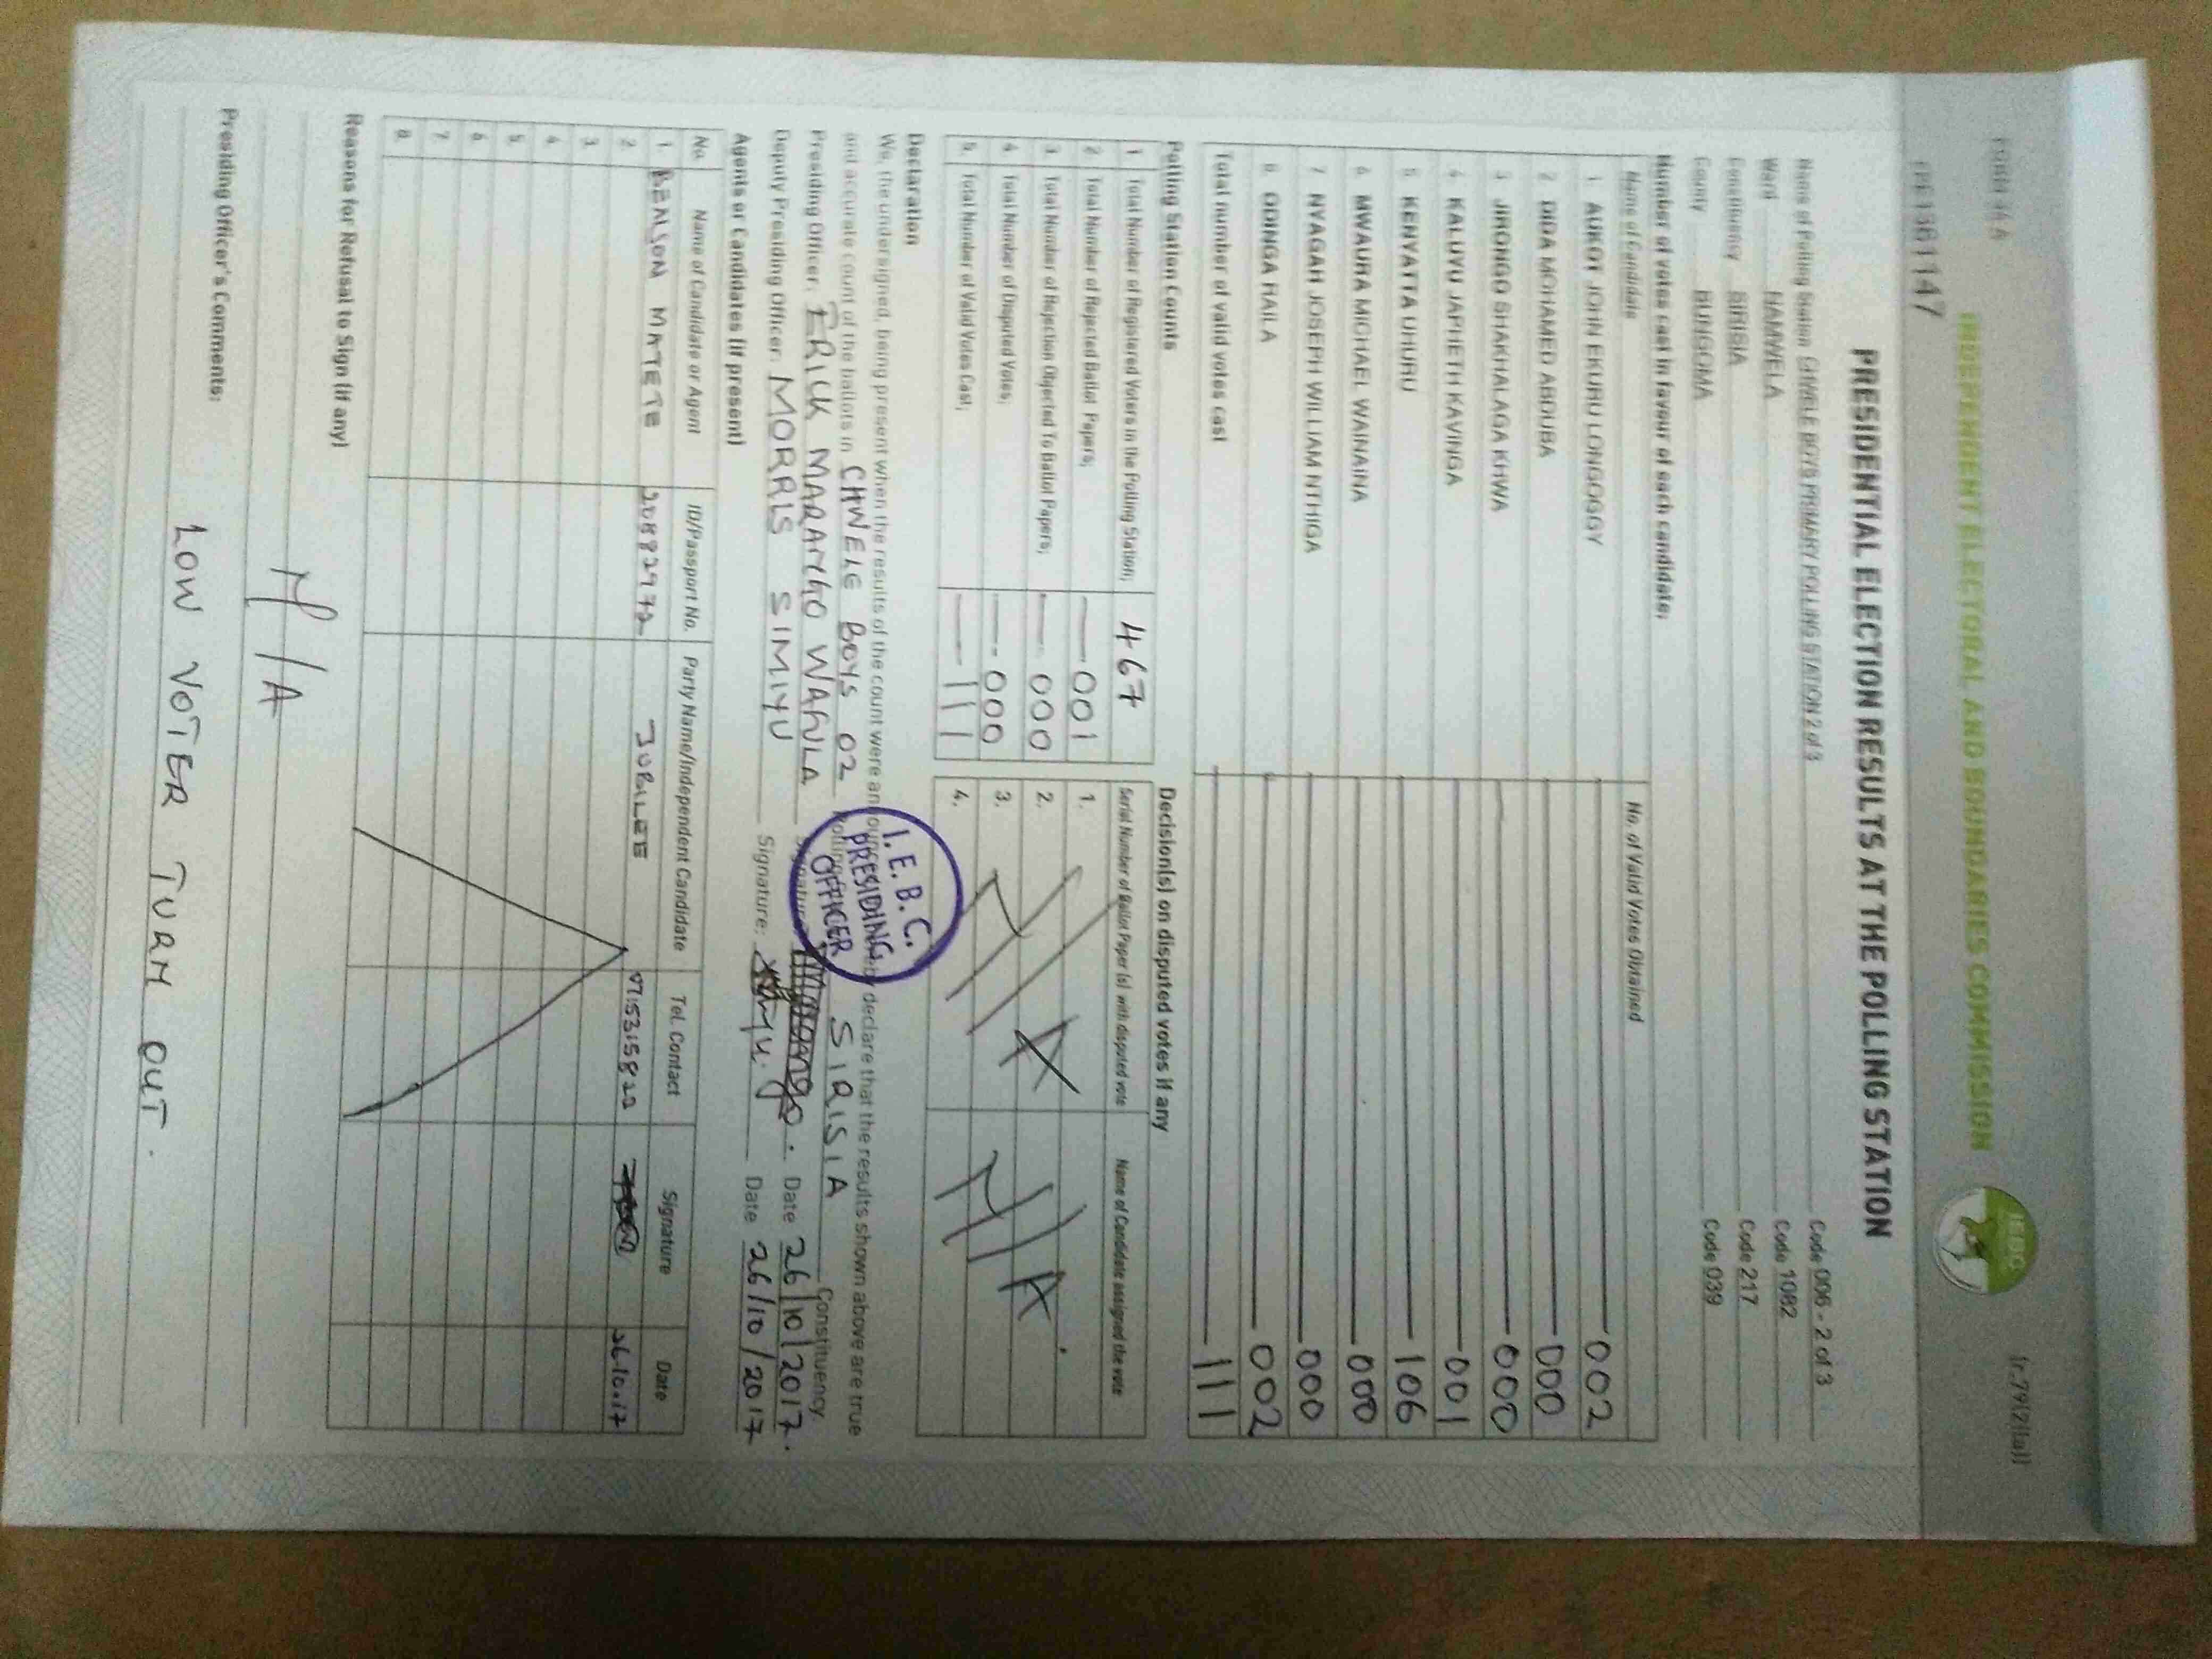 FORM 34A
INDEPENDENT ELECTORAL AND BOUNDARIES COMMISSION
IEBC
(r.79(2)(a))
1361147
PRESIDENTIAL ELECTION RESULTS AT THE POLLING STATION
Name of Polling Station CHWELE BOYS PRIMARY POLLING STATION 2 of 3 Code 006 - 2 of 3
Ward NAMWELA Code 1082
Constituency SIRISIA Code 217
County BUNGOMA Code 039
Number of votes cast in favour of each candidate:
Name of Candidate No. of Valid Votes Obtained
1 AUKOT JOHN EKURU LONGOGGY 002
2 DIDA MOHAMED ABDUBA 000
3 JIRONGO SHAKHALAGA KHWA 000
4 KALUYU JAPHETH KAVINGA 001
5 KENYATTA UHURU 106
6 MWAURA MICHAEL WAINAINA 000
7 NYAGAH JOSEPH WILLIAM NTHIGA 000
8 ODINGA RAILA 002
Total number of valid votes cast 111
Polling Station Counts
1 Total Number of Registered Voters in the Polling Station; 467
2 Total Number of Rejected Ballot Papers; 001
3 Total Number of Rejection Objected To Ballot Papers; 000
4 Total Number of Disputed Votes; 000
5. Total Number of Valid Votes Cast; 111
Decision(s) on disputed votes if any
Serial Number of Ballot Paper (s) with disputed vote Name of Candidate assigned the vote
1.
2.
3.
4.
N/A N/A.
Declaration
We, the undersigned, being present when the results of the count were announced, declare that the results shown above are true
and accurate count of the ballots in CHWELE BOYS 02 Polling SIRISIA Constituency
Presiding Officer: ERICK MARANGO WAFULA Signature: Date 26/10/2017.
Deputy Presiding Officer: MORRIS SIMIYU Signature: Date 26/10/2017
I.E.B.C.
PRESIDING
OFFICER
Agents or Candidates (if present)
No. Name of Candidate or Agent ID/Passport No. Party Name/Independent Candidate Tel. Contact Signature Date
1. BENSON MATETE 20882972 JUBILEE 0715315822 26.10.17
2
3
4
5
6
7
8
Reasons for Refusal to Sign (if any)
N/A
Presiding Officer's Comments:
LOW VOTER TURN OUT.